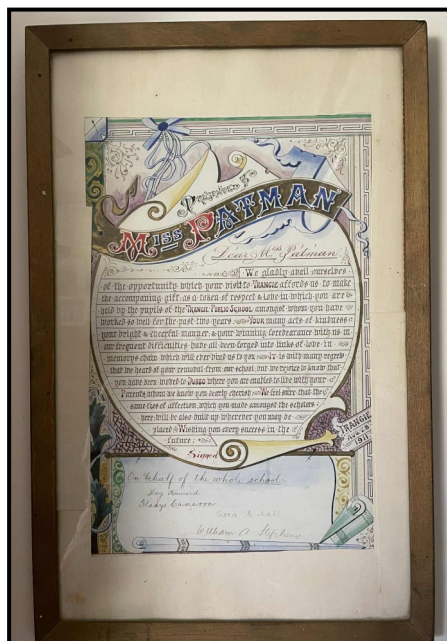 Presentation to
MISS PATMAN
Dear Miss Patman
We gladly avail ourselves
of the opportunity which your visit to TRANGIE affords us to make
the accompanying gift as a token of respect & love in which you are
held by the pupils of the TRANGIE PUBLIC SCHOOL amongst whom you have
worked so well for the past two years. YOUR many acts of kindness
your bright & cheerful manner, & your winning forbearance with us in
our frequent difficulties have all been forged into links of love in
memorys chain which will ever bind us to you IT is with many regrets
that we heard of your removal from our school, but we rejoice to know that
you have been moved to DUBBO where you are enabled to live with your
Parents whom we know you dearly cherish WE feel sure that the
same ties of affection which you made amongst the scholars
here will be also built up wherever you may be
placed Wishing you every success in the
future:
Signed
TRANGIE
1911
On behalf of the whole school
Gladys Cameron
William A Stephens